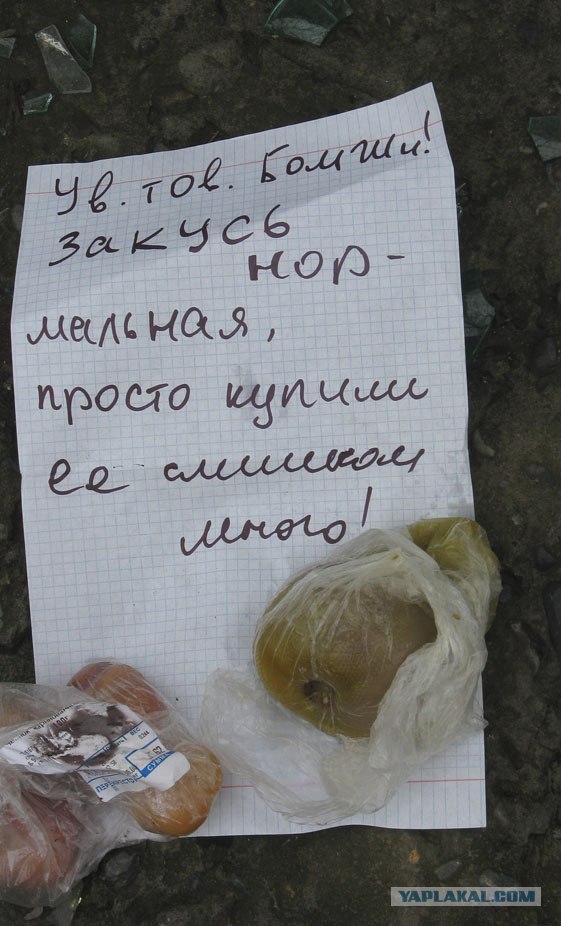 Ув. тов. Бомжи!
Закусь
нор-
мальная,
просто купили
ее слишком
много!
YAPLAKAL.COM